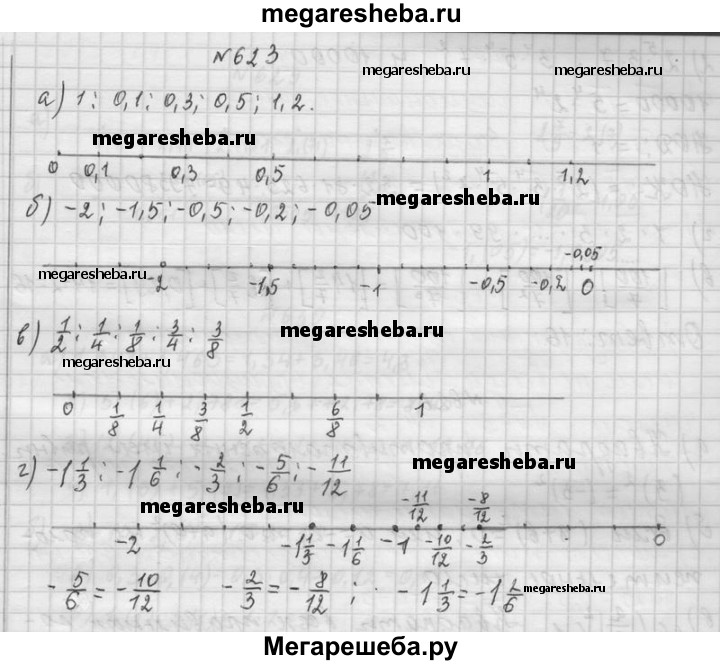 megaresheba.ru
№623
megaresheba.ru megaresheba.ru
а) 1; 0,1; 0,3; 0,5; 1,2.
megaresheba.ru
0 0,1 0,3 0,5 1 1,2
б) -2; -1,5; -0,5; -0,2; -0,05
megaresheba.ru
-0,05
megaresheba.ru
-2 -1,5 -1 -0,5 -0,2 0
в) 1/2; 1/4; 1/8; 3/4; 3/8
megaresheba.ru
megaresheba.ru
0 1/8 1/4 3/8 1/2 6/8 1
г) -1 1/3; -1 1/6; -2/3; -5/6; -11/12
megaresheba.ru
megaresheba.ru
-11/12 -8/12
-2 -1 1/3 -1 1/6 -1 -10/12 -2/3 0
-5/6 = -10/12 -2/3 = -8/12; -1 1/3 = -1 2/6
megaresheba.ru
Мегарешеба.ру